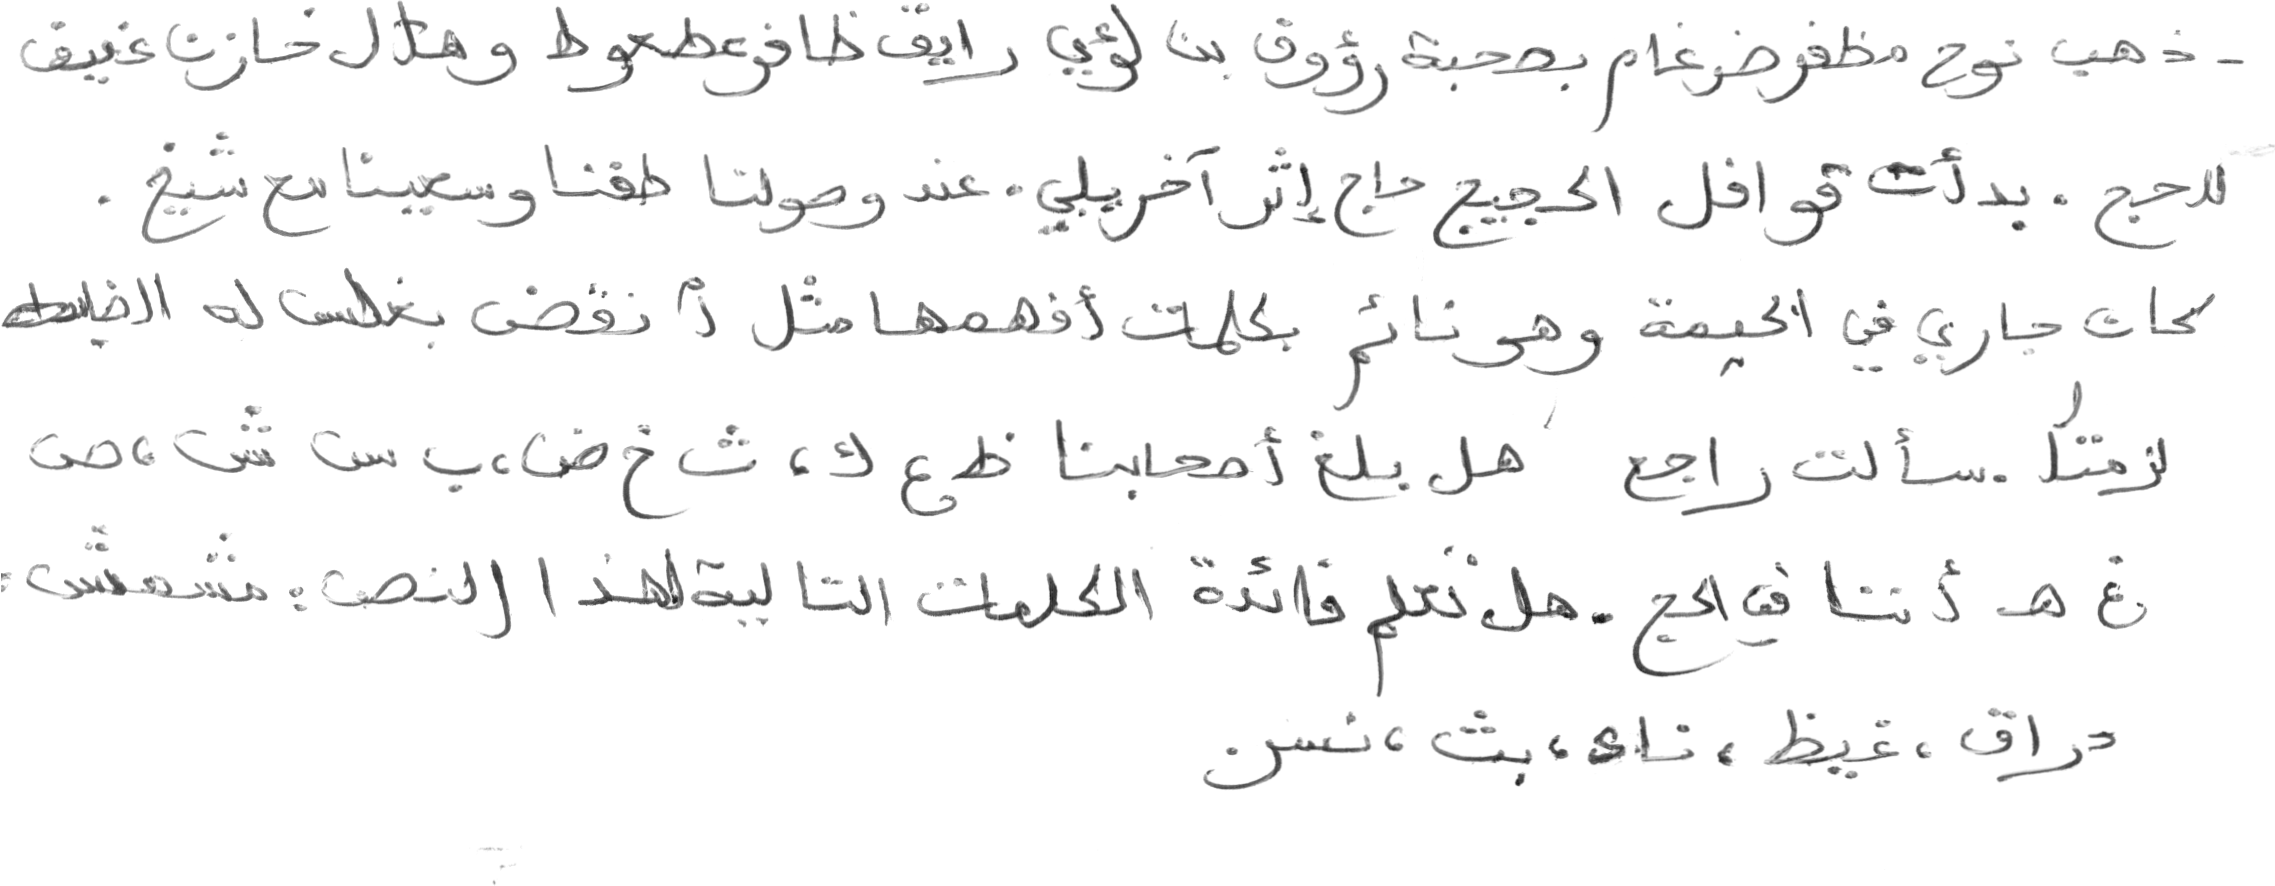 - ذهب نوح مظفر ضرغام بصحبة رؤوف بن لؤي رايق ظافر عطعوط وهلال خازن غبيق
للحج . بدأت قوافل الحجيج حاج إثر آخر يلبي . عند وصولنا طفنا وسعينا مع شيخ .
كان جاري في الخيمة وهو نائم بكلمات أفهمها مثل أم نقض بغلس له الضابط
لزمتك . سألت راجع هل بلغ أصحابنا ظ ع ك ، ث خ ض ، ب س ش ، ص
غ هـ أننا في الحج . هل تعلم فائدة الكلمات التالية لهذا النص : مشمش ،
دراق ، غيظ ، ناء ، بث ، نسر .